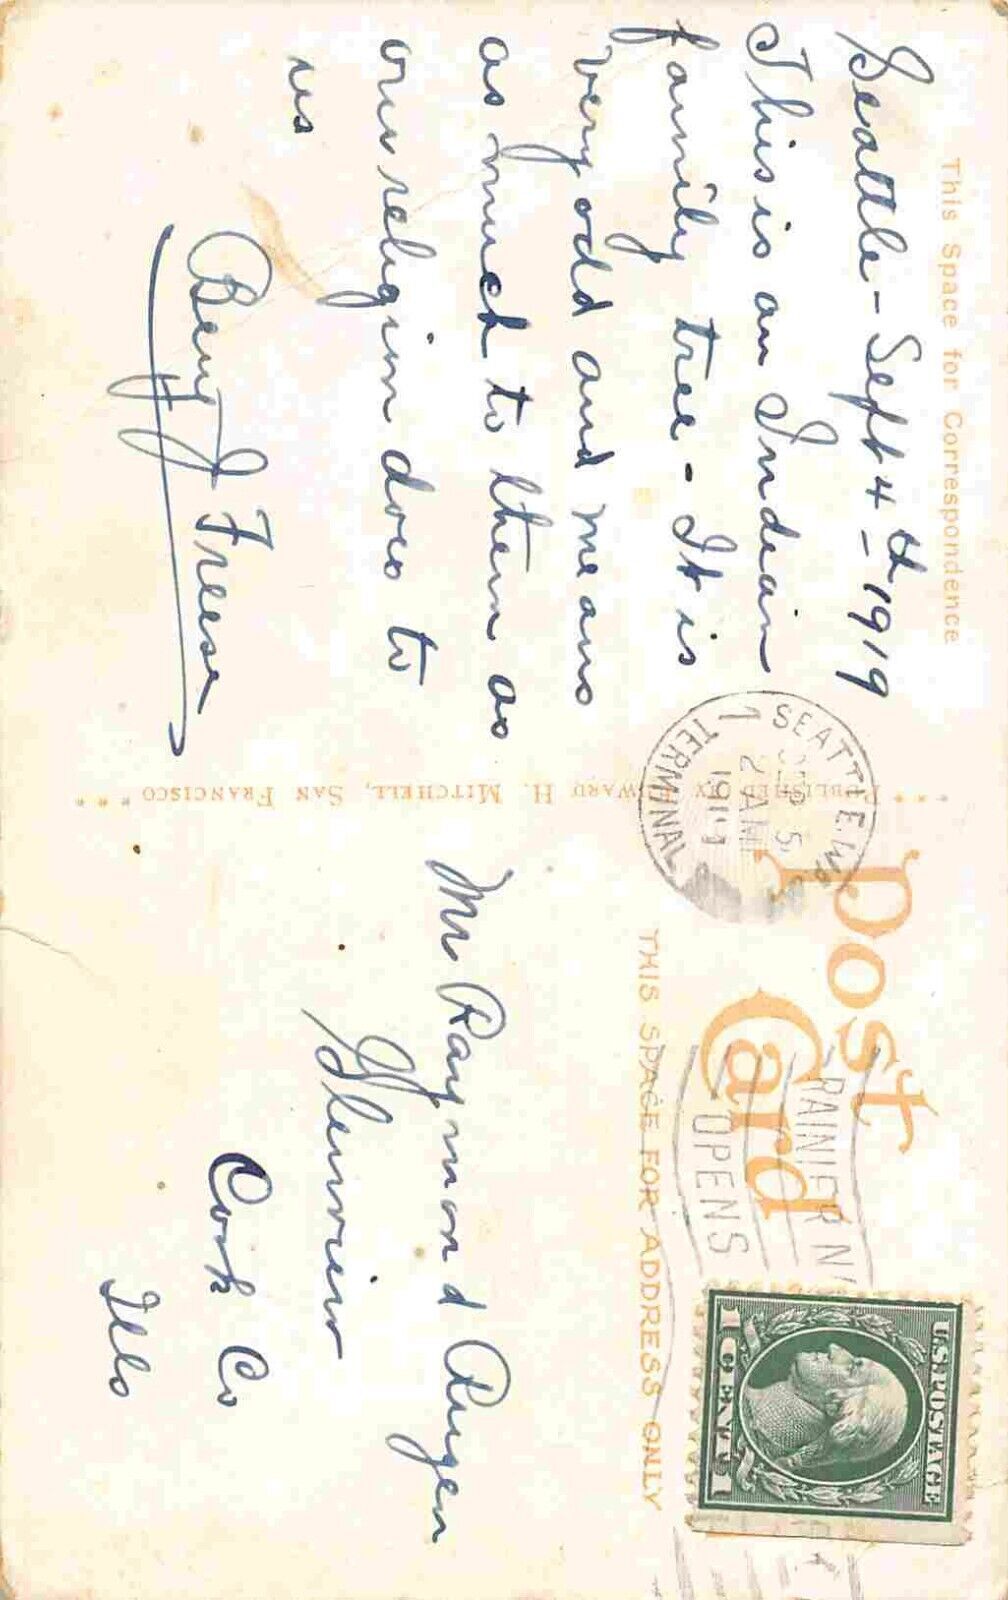 This Space for Correspondence
Seattle - Sept 4th - 1919
This is an Indian
family tree - It is
very odd and means
as much to them as
our religion does to
us
Benj Freese
Published by Edward H. Mitchell, San Francisco
Post
Card
THIS SPACE FOR ADDRESS ONLY
SEATTLE, WASH.
SEP 5
2 AM
1919
TERMINAL
RAINIER
OPENS
U.S. POSTAGE
1 CENT 1
Mr Raymond Rugen
Glenview
Cook Co
Ills